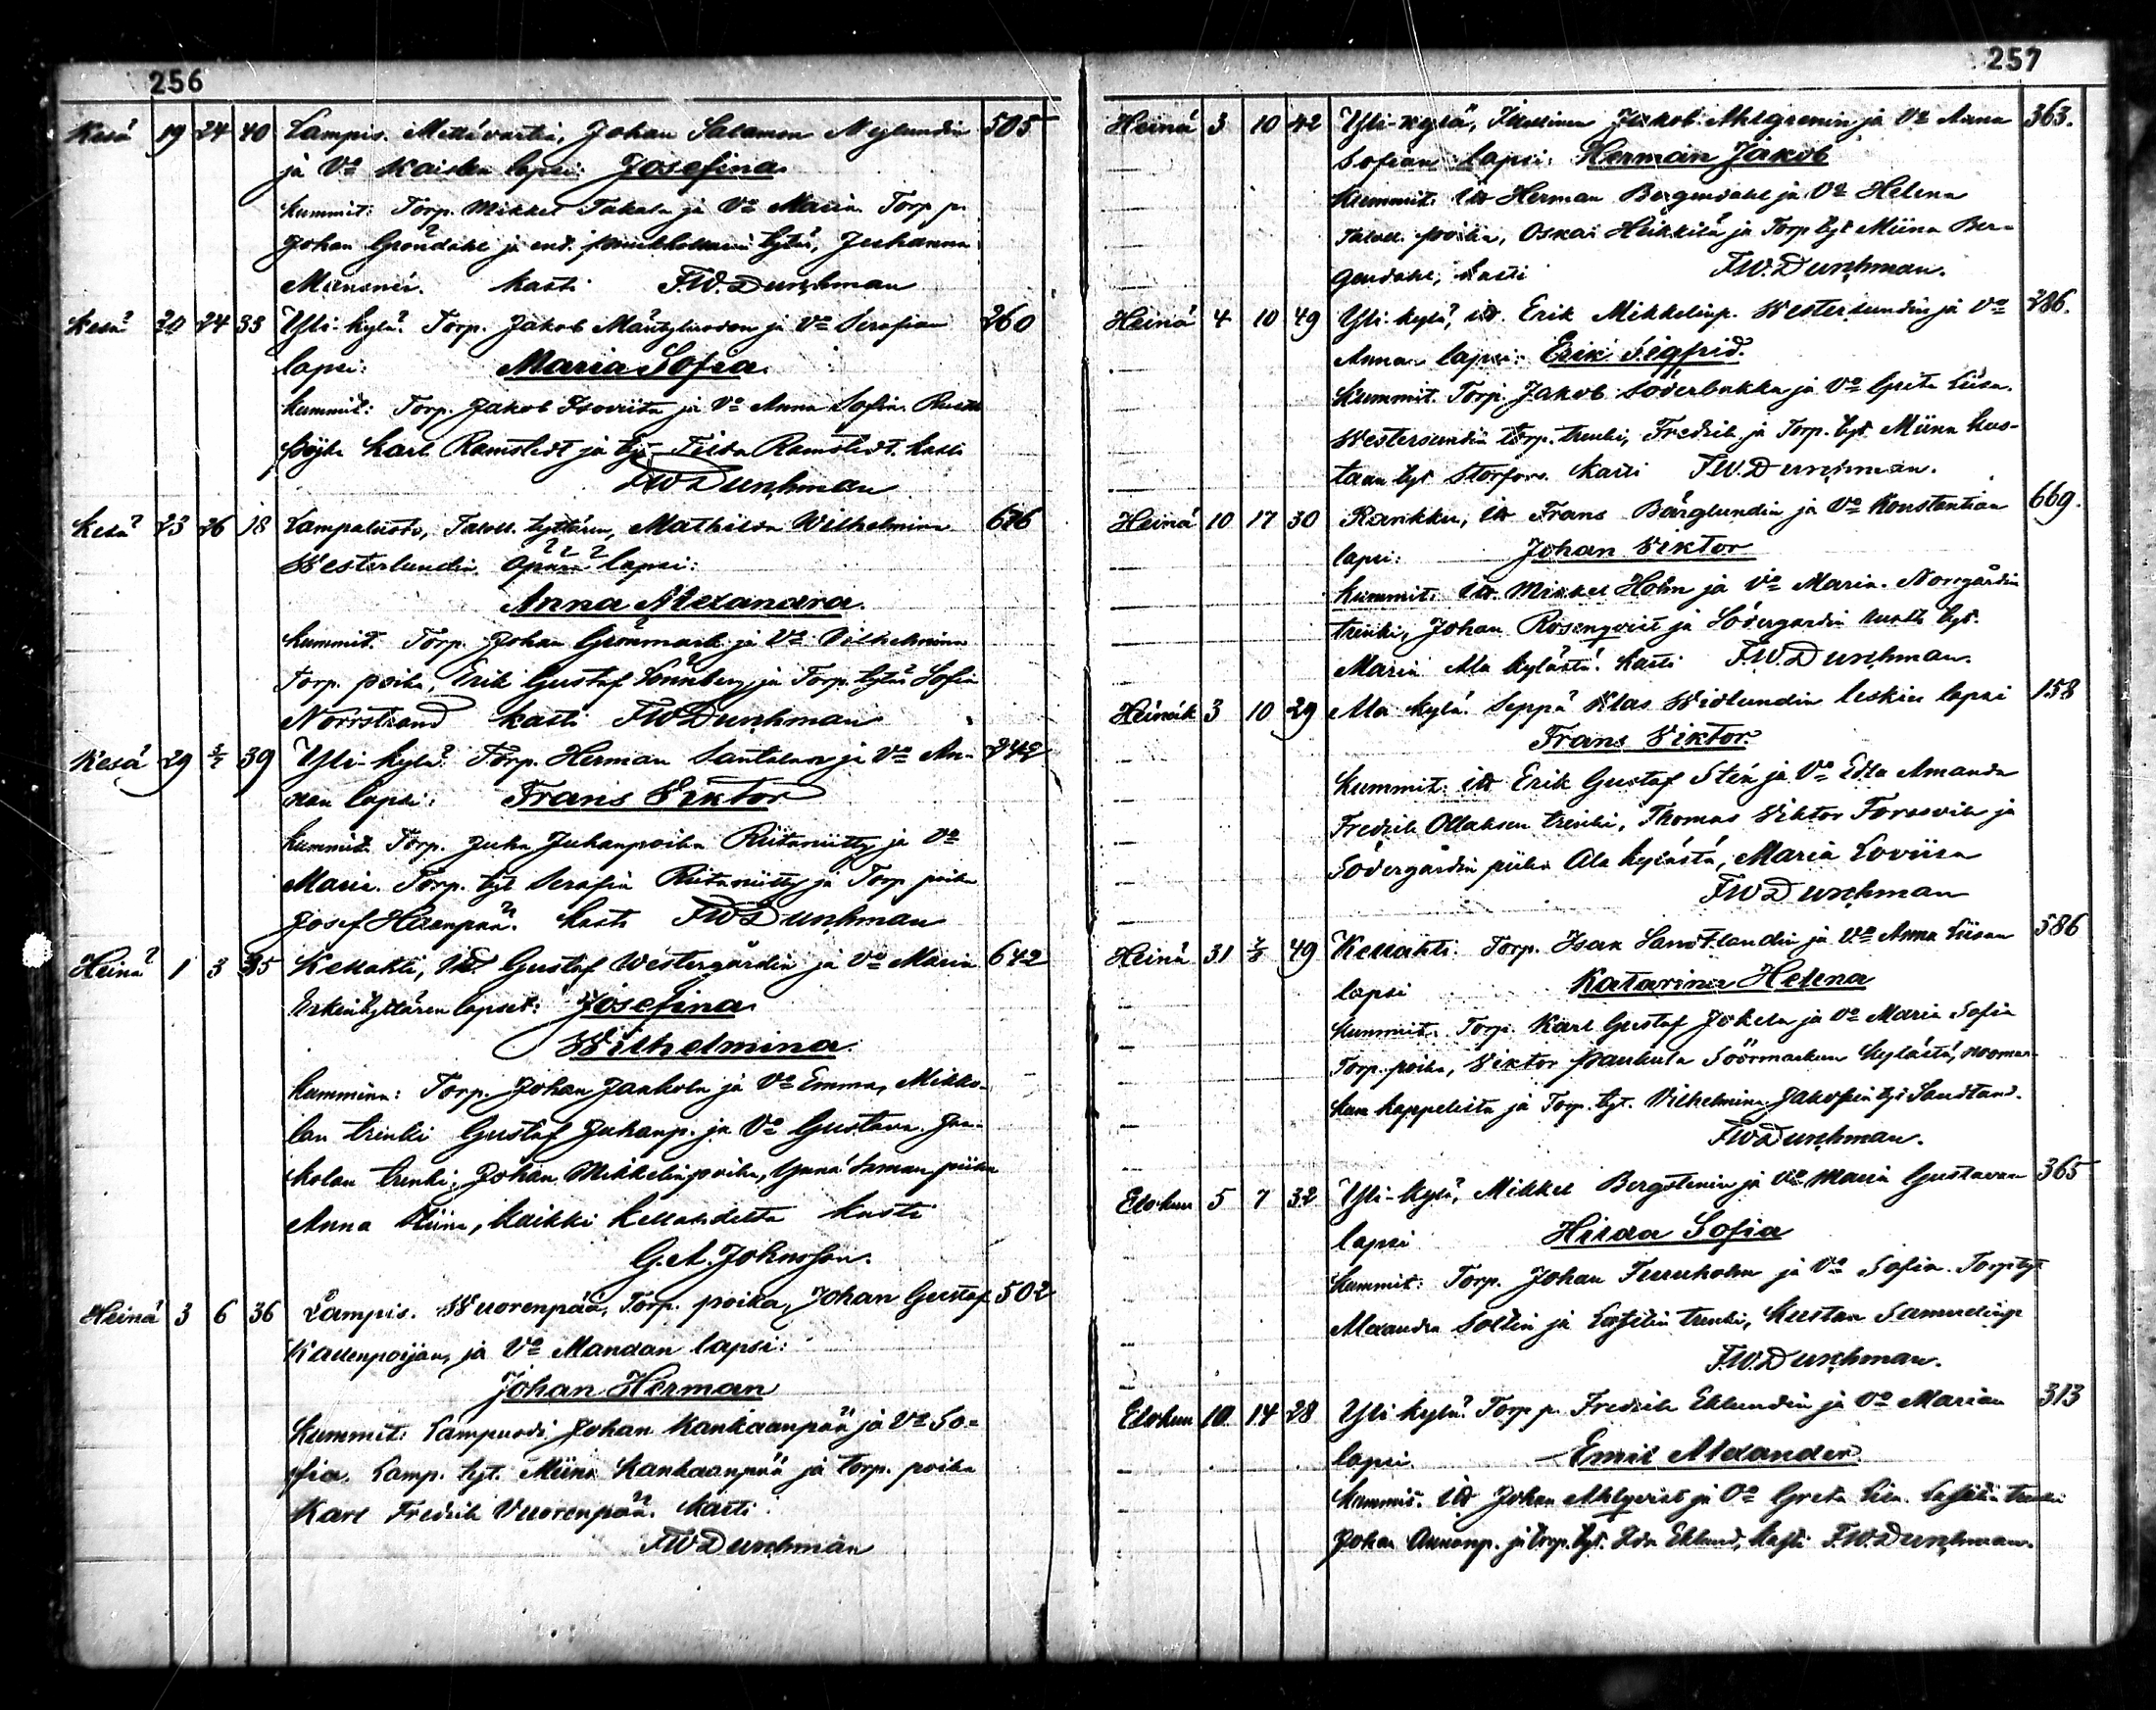 256
Kesä 19 24 40 Lampis. Mettävartia, Johan Salamon Nylundin 505
ja Vo Kaisan lapsi: Josefina.
Kummit: Torp. Mikkel Takala ja Vo Maria. Torp. p.
Johan Gröndahl ja tytär, Juhanna
kasti F.W. Dunchman
Kesä 20 24 33 Yli-kylä. Torp. Jakob ja Vo Serafian 260
lapsi: Maria Sofia.
Kummit: Torp. Jakob Isoviita ja Vo Anna Sofia.
Karl Ramstedt ja tyt. Tilda Ramstedt. kasti
F.W. Dunchman
Kesä 23 26 18 Lampaluoto, Taloll. tyttären, Mathilda Wilhelmina 676
Westerlundin äpärä lapsi:
Anna Alexandra.
Kummit. Torp. Johan Grönmark ja Vo Vilhelmina
Torp. poika, Erik Gustaf Lönnberg ja Torp. tytär Sofia
Norrstrand kasti F.W. Dunchman
Kesä 29 39 Yli-kylä. Torp. Herman Santalan ja Vo An- 242
nan lapsi: Frans Viktor
Kummit. Torp. Juha Juhanpoika Riitaniitty ja Vo
Maria. Torp. tyt. Serafia Riitaniitty ja Torp. poika
Josef Haenpää. kasti F.W. Dunchman
Heinä 1 3 35 Kellahti, Itt. Gustaf Westergårdin ja Vo Maria 642
Erkintyttären lapset: Josefina.
Wilhelmina.
Kummina: Torp. Johan Jaakola ja Vo Emma, Mikko-
lan trenki Gustaf Juhanp. ja Vo Gustava. Jaa-
kolan trenki, Johan Mikkelinpoika, saman piika
Anna Miina, kaikki Kellahdelta kasti
G.A. Johnsson.
Heinä 3 6 36 Lampis. Wuorenpää, Torp. poika, Johan Gustaf 502
Kallenpoijan, ja Vo Mandan lapsi:
Johan Herman
Kummit: Lampuodi Johan Kankaanpää ja Vo So-
fia. Lamp. tyt. Miina Kankaanpää ja torp. poika
Karl Fredrik Vuorenpää. kasti
F.W. Dunchman
257
Heinä 3 10 42 Yli-kylä, Itsellinen Jakob Ahlgrenin ja Vo Anna 363.
Sofian lapsi: Herman Jakob
Kummit. Itt. Herman Bergendahl ja Vo Helena
Taloll. poika, Oskar Heikkilä ja Torp. tyt. Miina Ber-
gendahl, kasti F.W. Dunchman.
Heinä 4 10 49 Yli-kylä, itt. Erik Mikkelinp. Westersundin ja Vo 286.
Anna lapsi: Erik Sigfrid.
Kummit. Torp. Jakob Söderbakka ja Vo Greta Liisa.
Westersundin torp. trenki, Fredrik ja Torp. tyt. Miina Kus-
taan tyt. Storfors. kasti F.W. Dunchman.
Heinä 10 17 30 Rankku, itt. Frans Bärglundin ja Vo Konstantian 669.
lapsi: Johan Viktor
Kummit: Itt. Mikkel Holm ja Vo Maria. Norrgårdin
trenki, Johan Rosenqvist ja Södergårdin tyt.
Maria Ala kylästä. kasti F.W. Dunchman.
Heinäk 3 10 29 Ala kylä. Seppä Klas Widlundin lesken lapsi 158
Frans Viktor.
Kummit. itt. Erik Gustaf Sten ja Vo Edla Amanda
Fredrik trenki, Thomas Viktor Forssvik ja
Södergårdin piika Ala kylästä, Maria Loviisa
F.W. Dunchman
Heinä 31 49 Kellahti. Torp. Isak Sandtlandin ja Vo Anna Liisan 586
lapsi Katarina Helena
Kummit. Torp. Karl Gustaf Jokela ja Vo Maria Sofia
Torp. poika, Viktor Paukula Söörmarkun kylästä, Noormar-
kun kappelista ja Torp. tyt. Vilhelmina Jakopin tyt. Sandtland.
F.W. Dunchman.
Elokuu 5 7 32 Yli-kylä, Mikkel Bergstenin ja Vo Maria Gustavan 365
lapsi Hilda Sofia
Kummit: Torp. Johan Furuholm ja Vo Sofia. Torp. tyt.
Alexandra Soltin ja trenki, Kustaa Samuelinp.
F.W. Dunchman.
Elokuu 10 14 28 Yli kylä. Torp. p. Fredrik Eklundin ja Vo Marian 313
lapsi Emil Alexander.
Kummit. Itt. Johan Ahlqvist ja Vo Greta Lisa. trenki
Johan ja torp. tyt. Ida Eklund, kasti F.W. Dunchman.